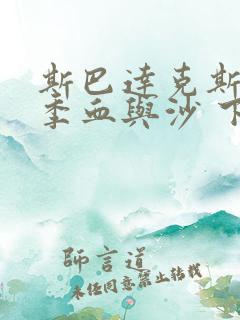 斯巴達克斯
季血與沙 下
師言道
未任同意禁止转载